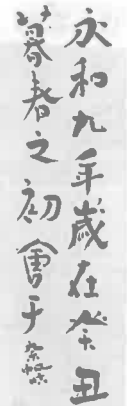 永和九年歲在癸丑
暮春之初會于